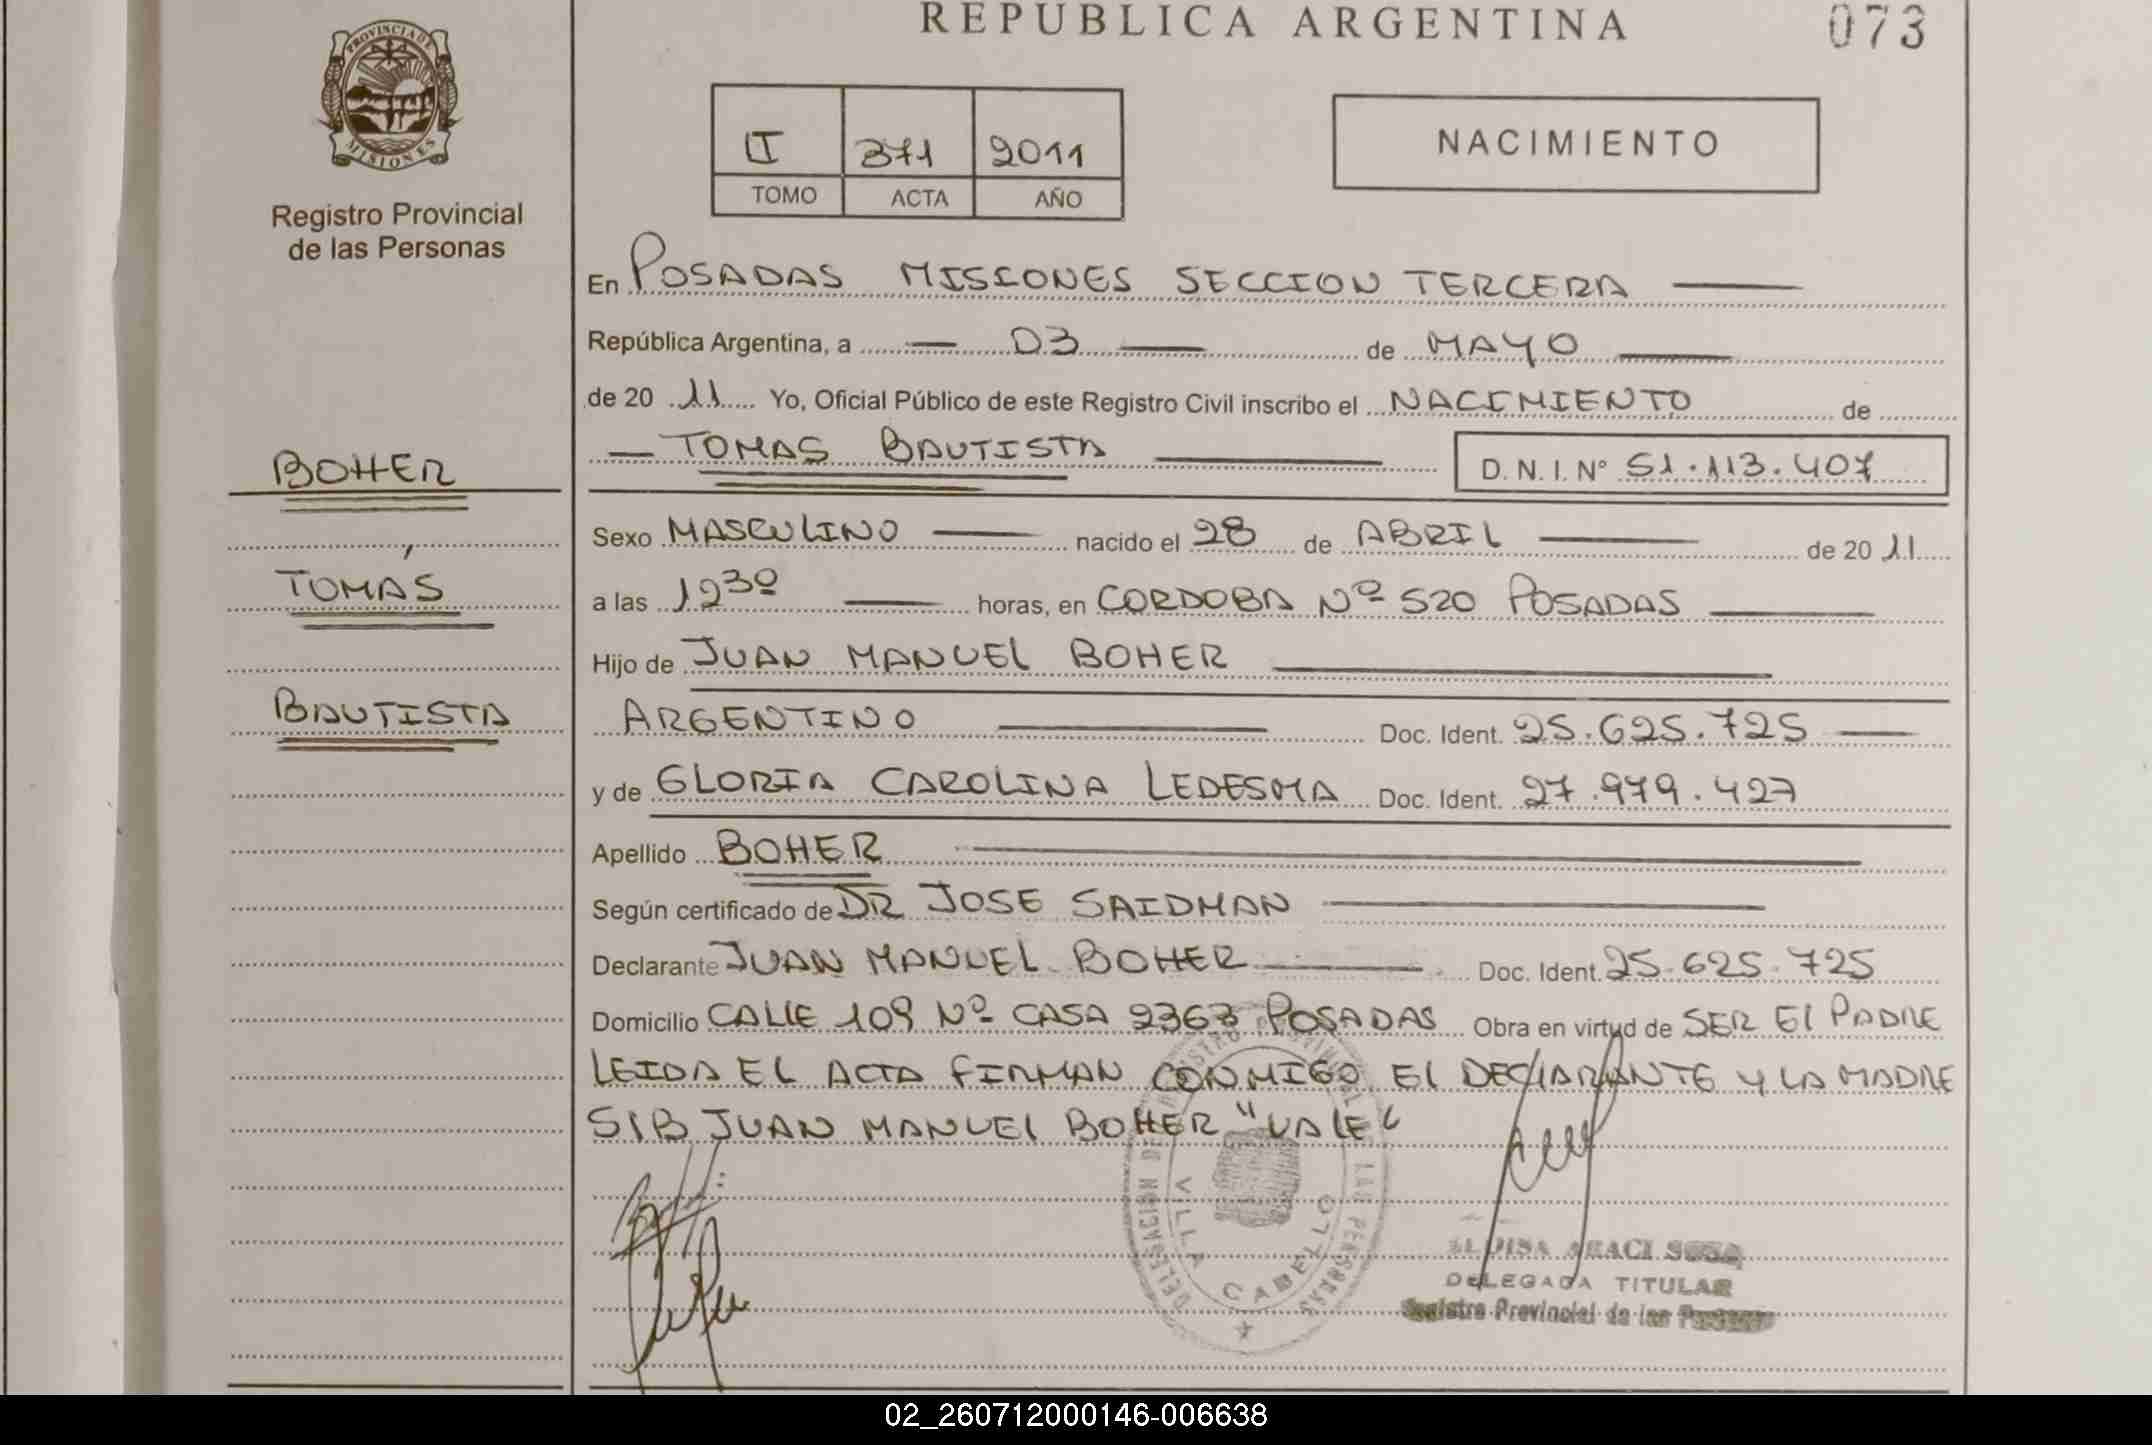 REPUBLICA ARGENTINA
073
PROVINCIA DE
MISIONES
Registro Provincial
de las Personas
II 371 2011
TOMO ACTA AÑO
NACIMIENTO
En POSADAS MISIONES SECCION TERCERA
República Argentina, a 03 de MAYO
de 20 11 Yo, Oficial Público de este Registro Civil inscribo el NACIMIENTO de
TOMAS BAUTISTA D. N. I. Nº 51.113.407
BOHER
TOMÁS
BAUTISTA
Sexo MASCULINO nacido el 28 de ABRIL de 20 11
a las 12 30 horas, en CORDOBA Nº 520 POSADAS
Hijo de JUAN MANUEL BOHER
ARGENTINO Doc. Ident. 25.625.725
y de GLORIA CAROLINA LEDESMA Doc. Ident. 27.979.427
Apellido BOHER
Según certificado de DR JOSE SAIDMAN
Declarante JUAN MANUEL BOHER Doc. Ident. 25.625.725
Domicilio CALLE 109 Nº CASA 2363 POSADAS Obra en virtud de SER El PADRE
LEIDA EL ACTA FIRMAN CONMIGO El DECLARANTE Y LA MADRE
S/B JUAN MANUEl BOHER "VALE"
VILLA CABELLO
DELEGADA TITULAR
Registro Provincial de las Personas
02_260712000146-006638